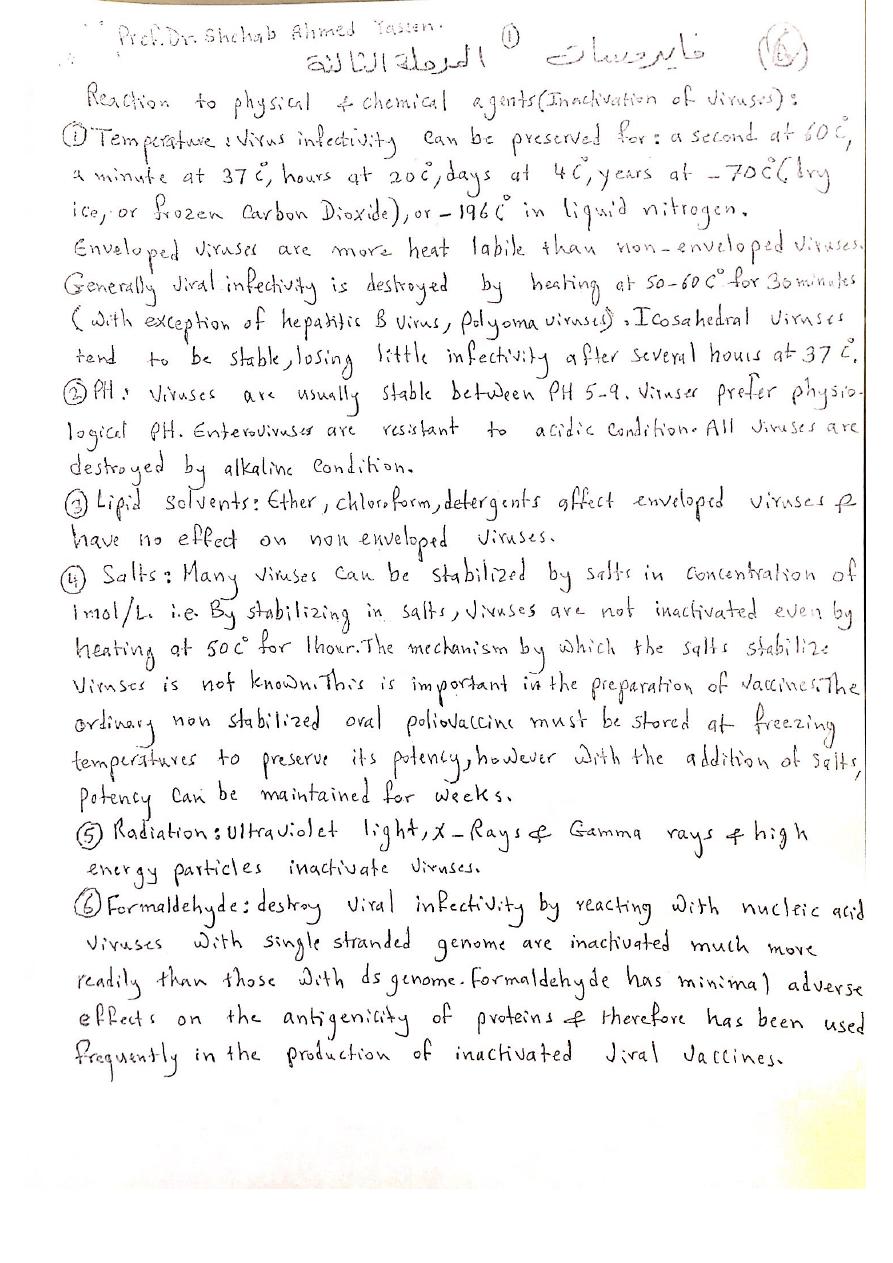 Prof. Dr. Shehab Ahmed Yassen. ①
المرحلة الثالثة فايروسات (6)
Reaction to physical & chemical agents (Inactivation of viruses):
① Temperature: Virus infectivity can be preserved for: a second at 60 C°,
a minute at 37 C°, hours at 20 C°, days at 4 C°, years at -70 C° (dry
ice, or frozen Carbon Dioxide), or -196 C° in liquid nitrogen.
Enveloped viruses are more heat labile than non-enveloped viruses.
Generally viral infectivity is destroyed by heating at 50-60 C° for 30 minutes
(with exception of hepatitis B virus, Polyoma viruses). Icosahedral viruses
tend to be stable, losing little infectivity after several hours at 37 C°.
② PH: Viruses are usually stable between PH 5-9. Viruses prefer physio-
logical PH. Enteroviruses are resistant to acidic condition. All viruses are
destroyed by alkaline condition.
③ Lipid solvents: Ether, chloroform, detergents affect enveloped viruses &
have no effect on non enveloped viruses.
④ Salts: Many viruses can be stabilized by salts in concentration of
1mol/L. i.e. By stabilizing in salts, viruses are not inactivated even by
heating at 50 C° for 1hour. The mechanism by which the salts stabilize
viruses is not known. This is important in the preparation of vaccines. The
ordinary non stabilized oral poliovaccine must be stored at freezing
temperatures to preserve its potency, however with the addition of salts,
potency can be maintained for weeks.
⑤ Radiation: Ultraviolet light, X-Rays & Gamma rays & high
energy particles inactivate viruses.
⑥ Formaldehyde: destroy viral infectivity by reacting with nucleic acid
viruses with single stranded genome are inactivated much more
readily than those with ds genome. Formaldehyde has minimal adverse
effects on the antigenicity of proteins & therefore has been used
frequently in the production of inactivated viral vaccines.